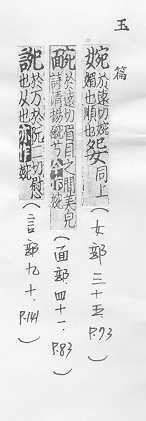 玉篇
婉 於遠切婉
媚也順也 㛄 同上 (女部三十五. P.73)
䩊 於遠切眉目之間美皃
詩清揚婉兮今作婉 (面部四十一. P.83)
䛷 於万於阮二切慰
也从也亦作婉 (言部九十. P.141)